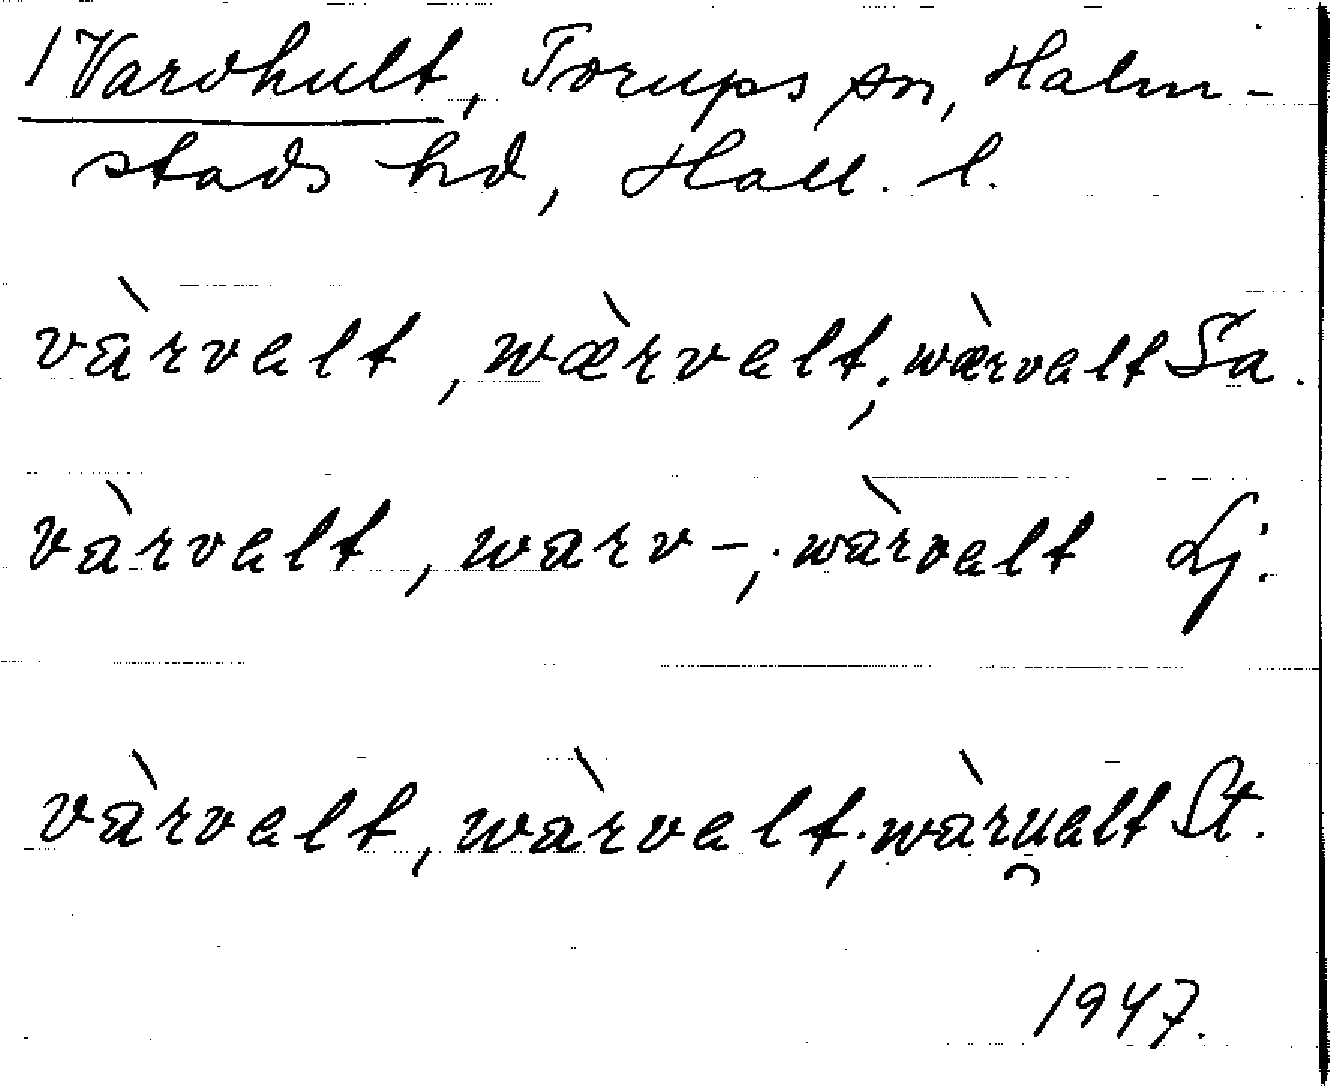 1 Vardhult, Torups sn, Halm-
stads hd, Hall. l.
vàrvalt, wærvalt; wærvalt Sa.
vàrvalt, warv-; wàrvalt Lj.
vàrvalt, wàrvalt; wàru̯alt St.
1947.